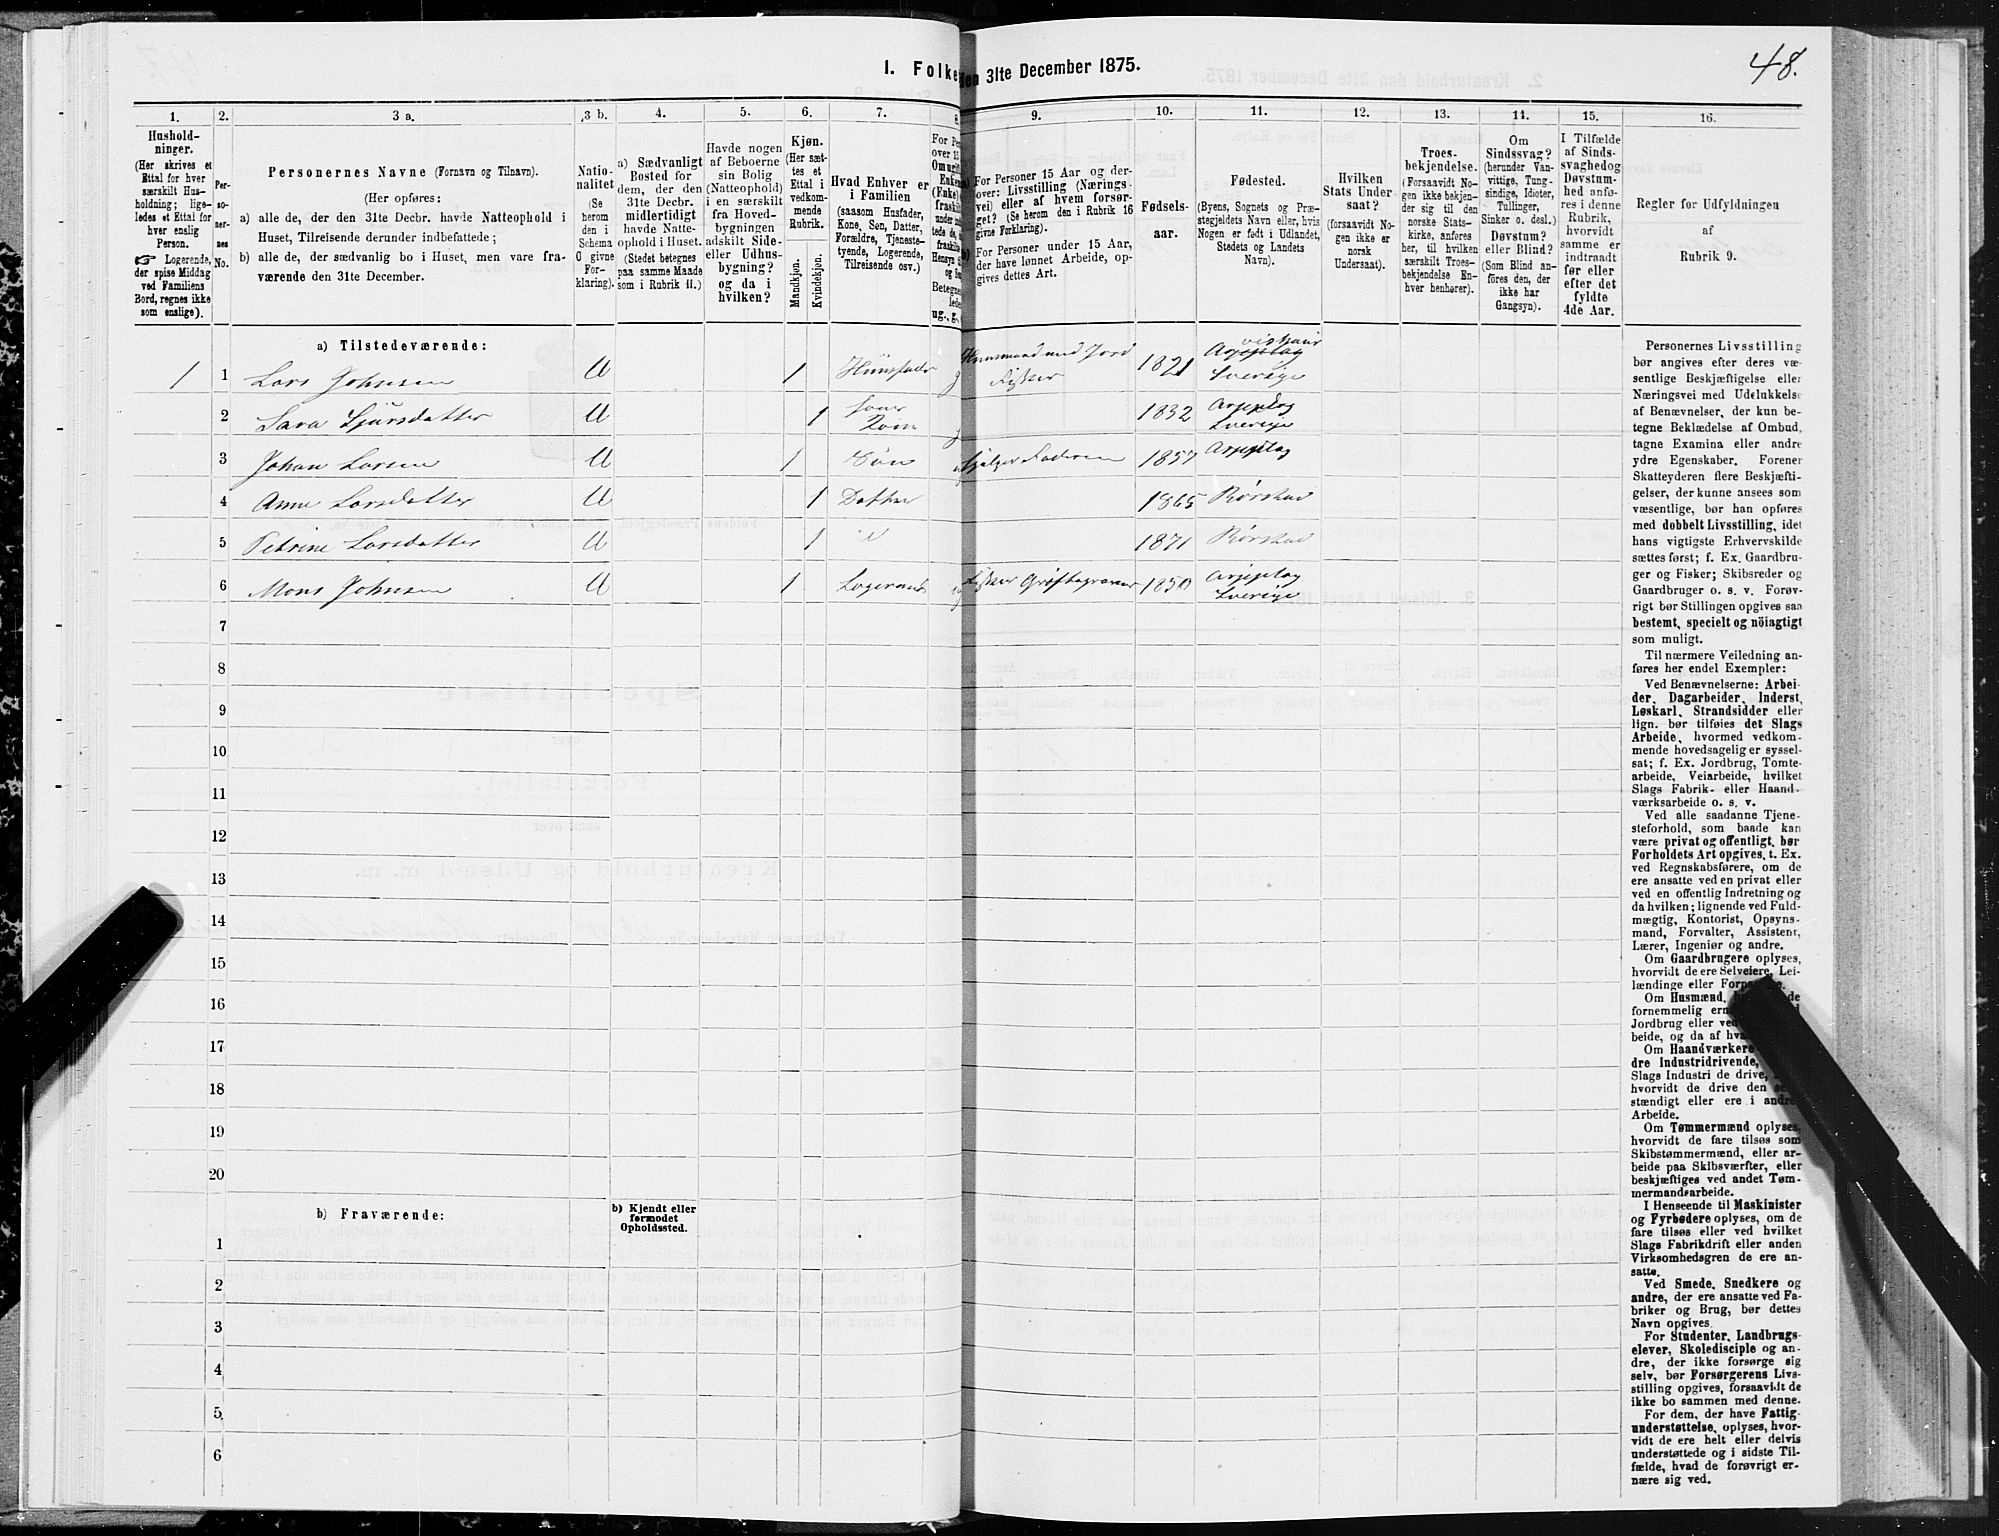 48.
I. Folke
den 31te December 1875.
1.
Hushold-
ninger.
(Her skrives et
Ettal for hver
særskilt Hus-
holdning; lige-
ledes et Ettal for
hver enslig
Person.
☞ Logerende,
der spise Middag
ved Familiens
Bord, regnes ikke
som enslige).
2.
Per-
so-
ner-
nes
No.
3 a.
Personernes Navne (Fornavn og Tilnavn).
(Her opføres:
a) alle de, der den 31te Decbr. havde Natteophold i
Huset, Tilreisende derunder indbefattede;
b) alle de, der sædvanlig bo i Huset, men vare fra-
værende den 31te December.
3 b.
Natio-
nalitet
(Se
herom
den i
Schema
C givne
For-
klaring).
4.
a) Sædvanligt
Bosted for
dem, der den
31te Decbr.
midlertidigt
havde Natte-
ophold i Huset.
(Stedet betegnes
paa samme Maade
som i Rubrik 11.)
5.
Havde nogen
af Beboerne
sin Bolig
(Natteophold)
i en særskilt
fra Hoved-
bygningen
adskilt Side-
eller Udhus-
bygning?
og da i
hvilken?
6.
Kjøn.
(Her sæt-
tes et
Ettal i
vedkom-
mende
Rubrik.
Mandkjøn.
Kvindekjøn.
7.
Hvad Enhver er
i Familien
(saasom Husfader,
Kone, Søn, Datter,
Forældre, Tjeneste-
tyende, Logerende,
Tilreisende osv.)
8.
For Pe
over 15
Omugift
Enkem
(Enke)
fraskilt
ug., g.,
9.
For Personer 15 Aar og der-
over: Livsstilling (Nærings-
vei) eller af hvem forsør-
get? (Se herom den i Rubrik 16
givne Forklaring).
For Personer under 15 Aar,
der have lønnet Arbeide, op-
gives dettes Art.
10.
Fødsels-
aar.
11.
Fødested.
(Byens, Sognets og Præ-
stegjeldets Navn eller, hvis
Nogen er født i Udlandet,
Stedets og Landets
Navn).
12.
Hvilken
Stats Under-
saat?
(forsaavidt No-
gen ikke er
norsk
Undersaat).
13.
Troes-
bekjendelse.
(Forsaavidt No-
gen ikke bekjen-
der sig til den
norske Stats-
kirke, anføres
her, til hvilken
særskilt Troes-
bekjendelse En-
hver henhører).
14.
Om
Sindssvag?
(herunder Van-
vittige, Tung-
sindige, Idioter,
Tullinger,
Sinker o. desl.)
Døvstum?
eller Blind?
(Som Blind an-
föres den, der
ikke har
Gangsyn).
15.
I Tilfælde
af Sinds-
svaghed og
Døvstum-
hed anfø-
res i denne
Rubrik,
hvorvidt
samme er
indtraadt
før eller
efter det
fyldte
4de Aar.
16.
Regler for Udfyldningen
af
Rubrik 9.
a) Tilstedeværende:
1 1 Lars Johnsen U 1 Huusfader g Huusmand med Jord Fisker 1821 Arjeplog Sverige
2 Sara Sjursdatter U 1 Kone 1832 Arjeplog Sverige
3 Johan Larsen U 1 Søn Hjelper Faderen 1857 Arjeplog
4 Anne Larsdatter U 1 Datter 1865 Rørstad
5 Petrine Larsdatter U 1 1871 Rørstad
6 Mons Johnsen U 1 Logerende Fisker Grøftegraver 1850 Arjeplog Sverige
7
8
9
10
11
12
13
14
15
16
17
18
19
20
b) Fraværende:
b) Kjendt eller
formodet
Opholdssted.
1
2
3
4
5
6
Personernes Livsstilling
bør angives efter deres væ-
sentlige Beskjæftigelse eller
Næringsvei med Udelukkelse
af Benævnelser, der kun be-
tegne Beklædelse af Ombud,
tagne Examina eller andre
ydre Egenskaber. Forener
Skatteyderen flere Beskjæfti-
gelser, der kunne ansees som
væsentlige, bør han opføres
med dobbelt Livsstilling, idet
hans vigtigste Erhvervskilde
sættes først; f. Ex. Gaardbru-
ger og Fisker; Skibsreder og
Gaardbruger o. s. v. Forøv-
rigt bør Stillingen opgives saa
bestemt, specielt og nöiagtigt
som muligt.
Til nærmere Veiledning an-
føres her endel Exempler:
Ved Benævnelserne: Arbei-
der, Dagarbeider, Inderst,
Løskarl, Strandsidder eller
lign. bør tilføies det Slags
Arbeide, hvormed vedkom-
mende hovedsagelig er syssel-
sat; f. Ex. Jordbrug, Tomte-
arbeide, Veiarbeide, hvilket
Slags Fabrik- eller Haand-
værksarbeide o. s. v.
Ved alle saadanne Tjene-
steforhold, som baade kan
være privat og offentligt, bør
Forholdets Art opgives, t. Ex.
ved Regnskabsførere, om de
ere ansatte ved en privat eller
ved en offentlig Indretning og
da hvilken; lignende ved Fuld-
mægtig, Kontorist, Opsyns-
mand, Forvalter, Assistent,
Lærer, Ingeniør og andre.
Om Gaardbrugere oplyses,
hvorvidt de ere Selveiere, Lei-
lændinge eller
Om Husmænd,
fornemmelig
Jordbrug eller
beide, og da af
Om Haandværkere
dre Industridrivende,
Slags Industri de drive,
hvorvidt de drive den
stændigt eller ere i andres
Arbeide.
Om Tømmermænd oplyses,
hvorvidt de fare tilsøs som
Skibstømmermænd, eller ar-
beide paa Skibsværfter, eller
beskjæftiges ved andet Tøm-
mermandsarbeide.
I Henseende til Maskinister
og Fyrbødere oplyses, om de
fare tilsøs eller ved hvilket
Slags Fabrikdrift eller anden
Virksomhedsgren de ere an-
satte.
Ved Smede, Snedkere og
andre, der ere ansatte ved Fa-
briker og Brug, bør dettes
Navn opgives.
For Studenter, Landbrugs-
elever, Skoledisciple og an-
dre, der ikke forsørge sig
selv, bør Forsørgerens Livs-
stilling opgives, forsaavidt de
ikke bo sammen med denne.
For dem, der have Fattig-
understøttelse, oplyses, hvor-
vidt de ere helt eller delvis
understøttede og i sidste Til-
fælde, hvad de forøvrigt er-
nære sig ved.